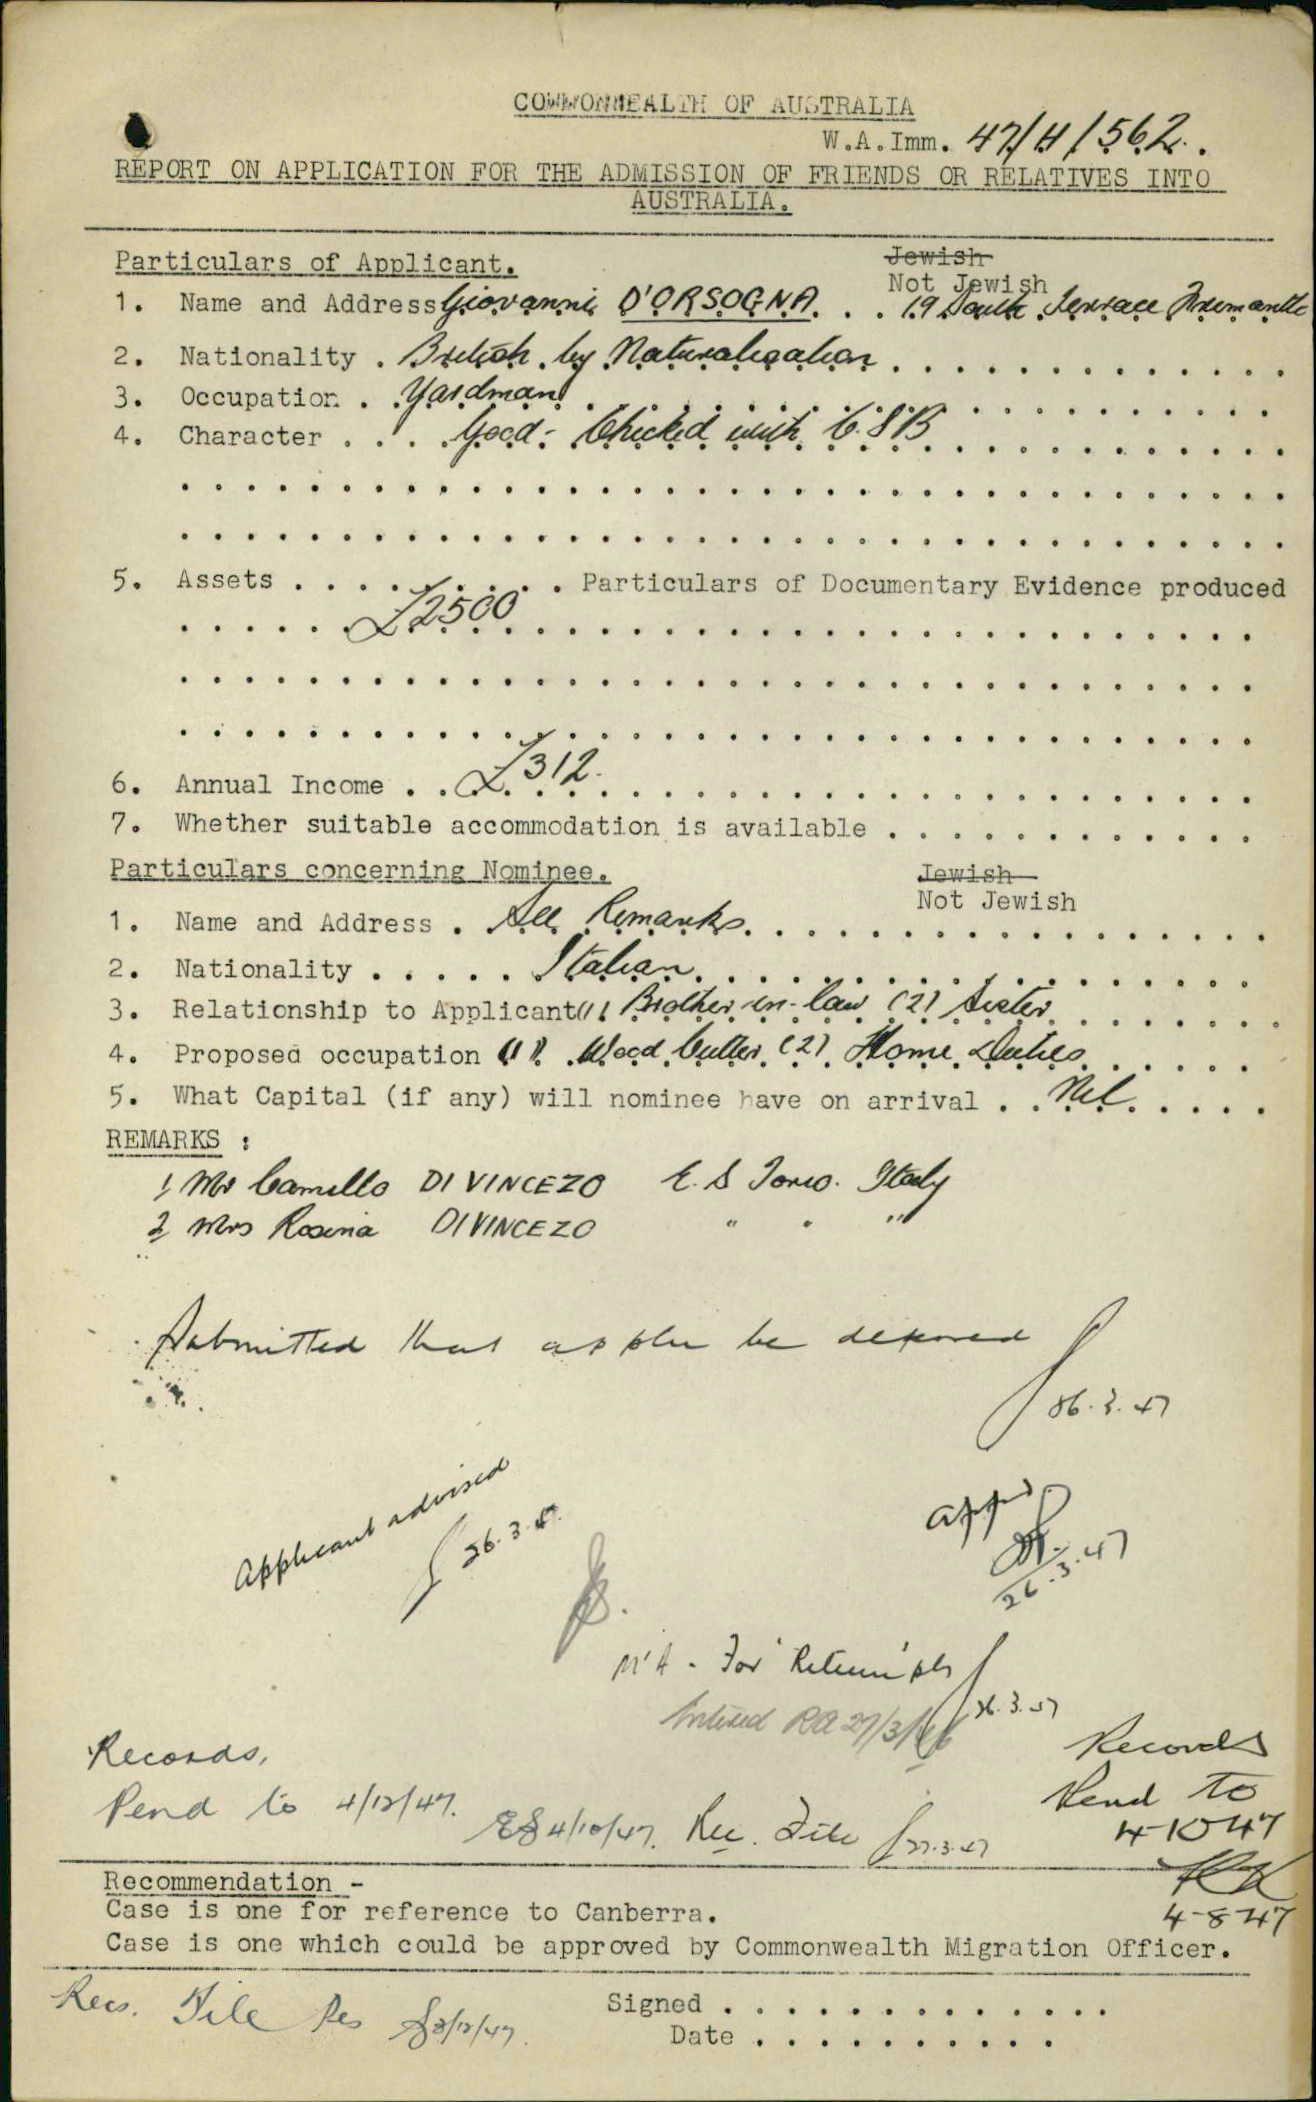 COMMONWEALTH OF AUSTRALIA
W.A.Imm. 47/H/562.
REPORT ON APPLICATION FOR THE ADMISSION OF FRIENDS OR RELATIVES INTO
AUSTRALIA.
Particulars of Applicant.
Jewish
Not Jewish
1. Name and Address Giovanni D'ORSOGNA . . . 19 South Terrace Fremantle
2. Nationality . British by Naturalisation
3. Occupation . Yardman
4. Character . . . Good - Checked with C.I.B
5. Assets . . . . . . . . . Particulars of Documentary Evidence produced
£2500
6. Annual Income . . £312.
7. Whether suitable accommodation is available . . . . . . . . . . . .
Particulars concerning Nominee.
Jewish
Not Jewish
1. Name and Address . See Remarks
2. Nationality . . . . . Italian
3. Relationship to Applicant (1) Brother-in-law (2) Sister
4. Proposed occupation (1) Wood Cutter (2) Home Duties
5. What Capital (if any) will nominee have on arrival . . Nil
REMARKS :
1, Mr Camillo DI VINCEZO E. S Torio. Italy
2, Mrs Rosina DI VINCEZO " " "
Submitted that appln be deferred
26.3.47
Applicant advised
26.3.47
app'd
26.3.47
For 'Return' pls
26.3.47
Entered RA 27/3/46
Records,
Pend to 4/12/47.
4/10/47.
Rec. File
27.3.47
Records
Pend to
4-10-47
4-8-47
Recommendation -
Case is one for reference to Canberra.
Case is one which could be approved by Commonwealth Migration Officer.
Recs. File Pls
3/12/47.
Signed . . . . . . . . . . . . .
Date . . . . . . . . . .